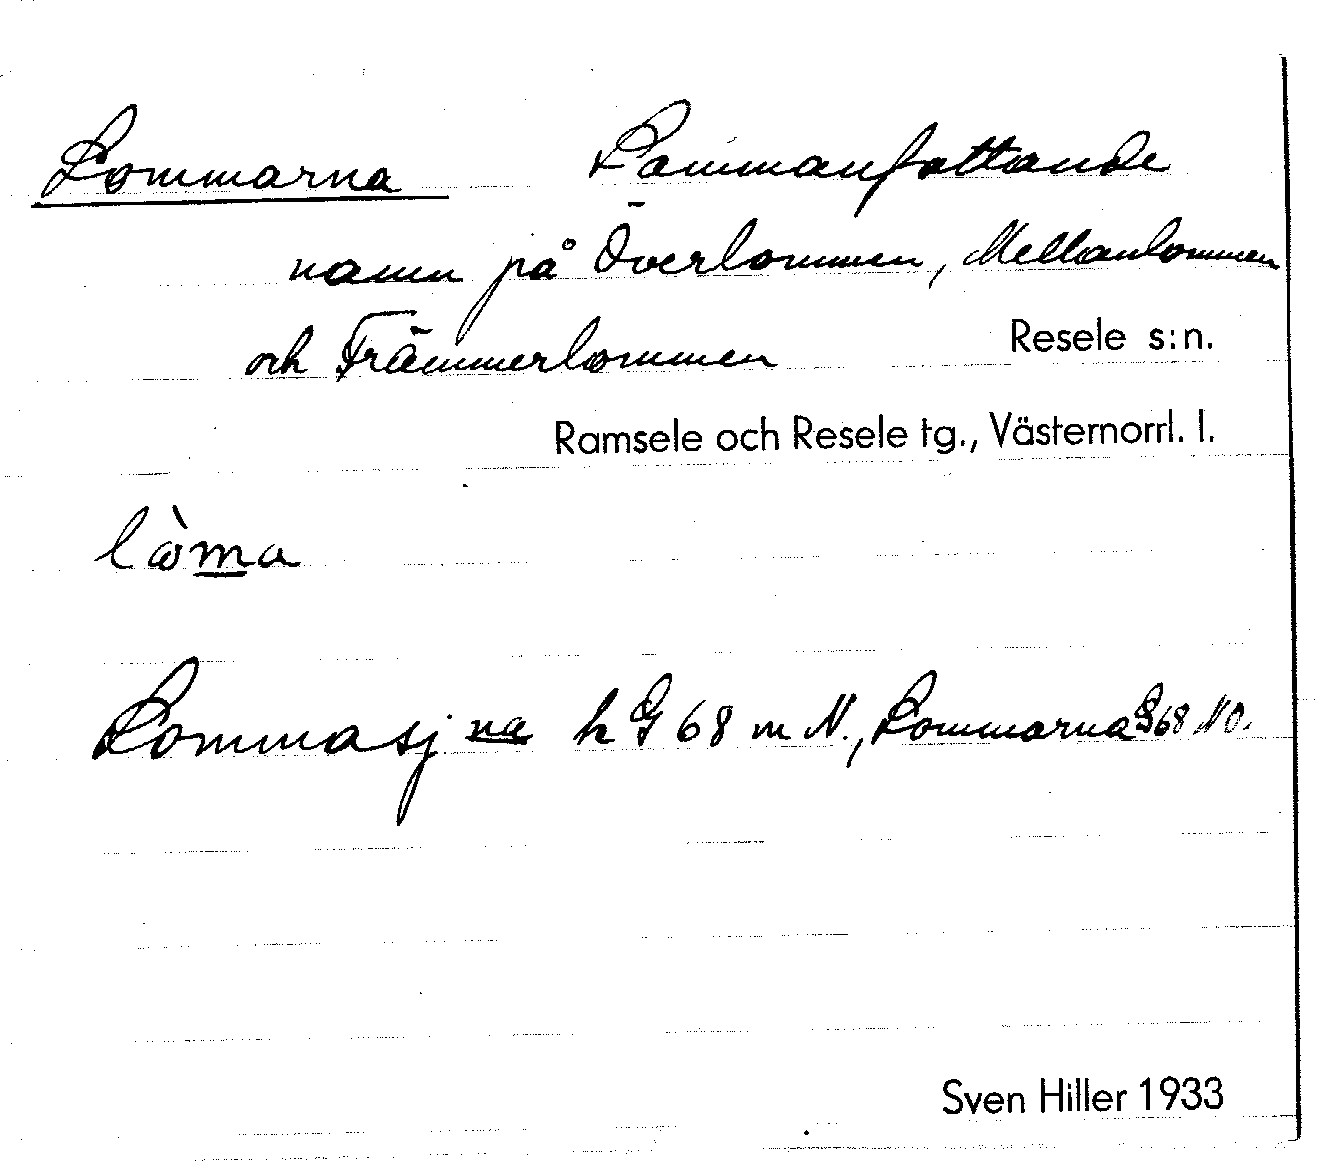 Lommarna Sammanfattande
namn på Överlommen, Mellanlommen
och Främmerlommen Resele s:n.
Ramsele och Resele tg., Västernorrl. l.
lòma
Lommasjna k G 68 m N., Lommarna G 68 NO.
Sven Hiller 1933